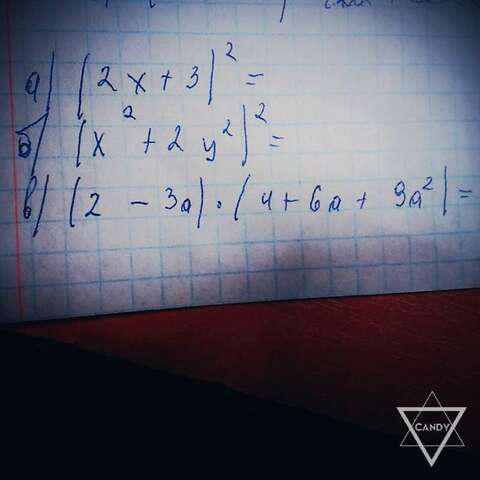 а) (2x+3)²=
б) (x²+2y²)²=
в) (2-3a)·(4+6a+9a²)=
CANDY